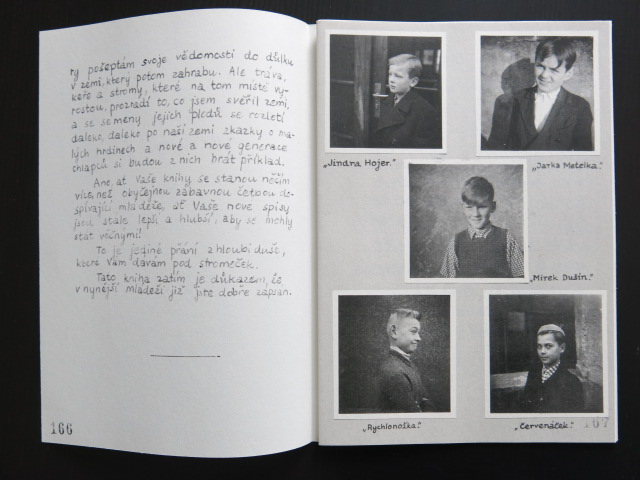 ry pošeptám svoje vědomosti do důlku
v zemi, který potom zahrabu. Ale tráva,
keře a stromy, které na tom místě vy-
rostou, prozradí to, co jsem svěřil zemi,
a se semeny jejich plodů se rozletí
daleko, daleko po naší zemi zkazky o ma-
lých hrdinech a nové a nové generace
chlapců si budou z nich brát příklad.
Ano, ať Vaše knihy se stanou něčím
více, než obyčejnou zábavnou četbou do-
spívající mládeže, ať Vaše nové spisy
jsou stále lepší a hlubší, aby se mohly
stát věčnými!
To je jediné přání z hloubi duše,
které Vám dávám pod stromeček.
Tato kniha zatím je důkazem, že
v nynější mládeži již jste dobře zapsán.
166
„Jindra Hojer."
„Jarka Metelka."
„Mirek Dušín."
„Rychlonožka."
„Červenáček."
167